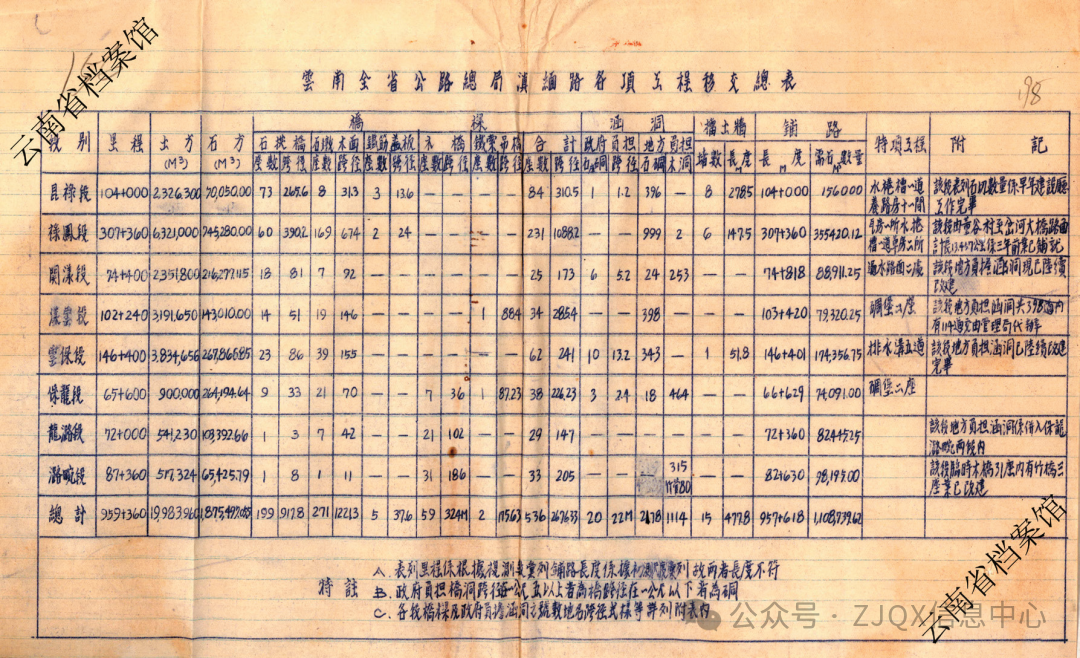 雲南全省公路總局滇緬路各項工程移交總表
198
段別 里程 土方(M³) 石方(M³) 橋樑 涵洞 擋土牆 鋪路 特項工程 附記
石拱橋 石墩木面 鋼筋蓋板 木橋 鐵索吊橋 合計 政府負担 地方負担
座數 跨徑 座數 跨徑 座數 跨徑 座數 跨徑 座數 跨徑 座數 跨徑 石硐 跨徑 石硐 木洞 站數 長度 長度M 需石數量
昆祿段 104+000 2,326,300 73 265.6 8 31.3 3 13.6 — — — — 84 310.5 1 1.2 396 — 8 278.5 104+000 156000 水槽一道
養路房十一間 該段表列石切數量係早年建設廳
工作完畢
祿鳳段 307+360 6,321,000 745,280.00 60 390.2 169 674 2 24 — — — — 231 1088.2 — — 999 2 6 147.5 307+360 355420.12
三年前業已鋪訖
關漾段 74+400 2,351,800 216,277.15 18 81 7 92 — — — — — — 25 173 6 5.2 24 253 — — 74+818 88,911.25 過水路面二處 該段地方負担涵洞現已陸續
改建
漾雲段 102+240 3,191,650 143,010.00 14 51 19 146 — — — — 1 88.4 34 285.4 — — 398 — — — 103+420 79,320.25 碉堡二座 該段地方負担涵洞共398道內
有114道完由管理局代辦
雲保段 146+400 3,834,656 267,866.85 23 86 39 155 — — — — — — 62 241 10 13.2 343 — 1 51.8 146+401 174,356.75 排水溝五道 該段地方負担涵洞已陸續改建
完畢
保龍段 65+600 900,000 264,194.64 9 33 21 70 — — 7 36 1 87.23 38 226.23 3 2.4 18 464 — — 66+629 74,091.00 碉堡二座
龍潞段 72+000 541,230 103,392.66 1 3 7 42 — — 21 102 — — 29 147 — — — — — — 72+360 82445.25 該段地方負担涵洞係併入保龍
潞畹兩段內
潞畹段 87+360 517,324 65,425.79 1 8 1 11 — — 31 186 — — 33 205 — — 315 — — 82+630 98,195.00 該段臨時木橋31座內有竹橋三
座業已改建
總計 959+360 19,983,960 199 917.8 271 1221.3 5 37.6 59 324M 2 175.63 536 2676.33 20 22M 2178 1114 15 477.8 957+618 1,108,739.62
特註
A. 表列里程係根據視測 鋪路長度係據 故兩者長度不符
B. 政府負担橋洞跨徑一公尺五以上者為橋跨徑在一公尺以下者為硐
C. 各段橋樑及政府負担涵洞之號數地名跨徑式樣等詳列附表內
云南省档案馆
云南省档案馆
公众号 · ZJQX信息中心